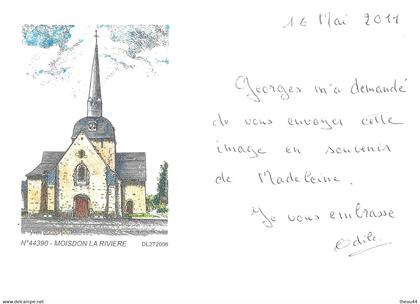 16 Mai 2011
Georges m'a demandé
de vous envoyer cette
image en souvenir
de Madeleine.
Je vous embrasse
Odile
N°44390 - MOISDON LA RIVIERE DL2T2006
www.delcampe.net
theau44